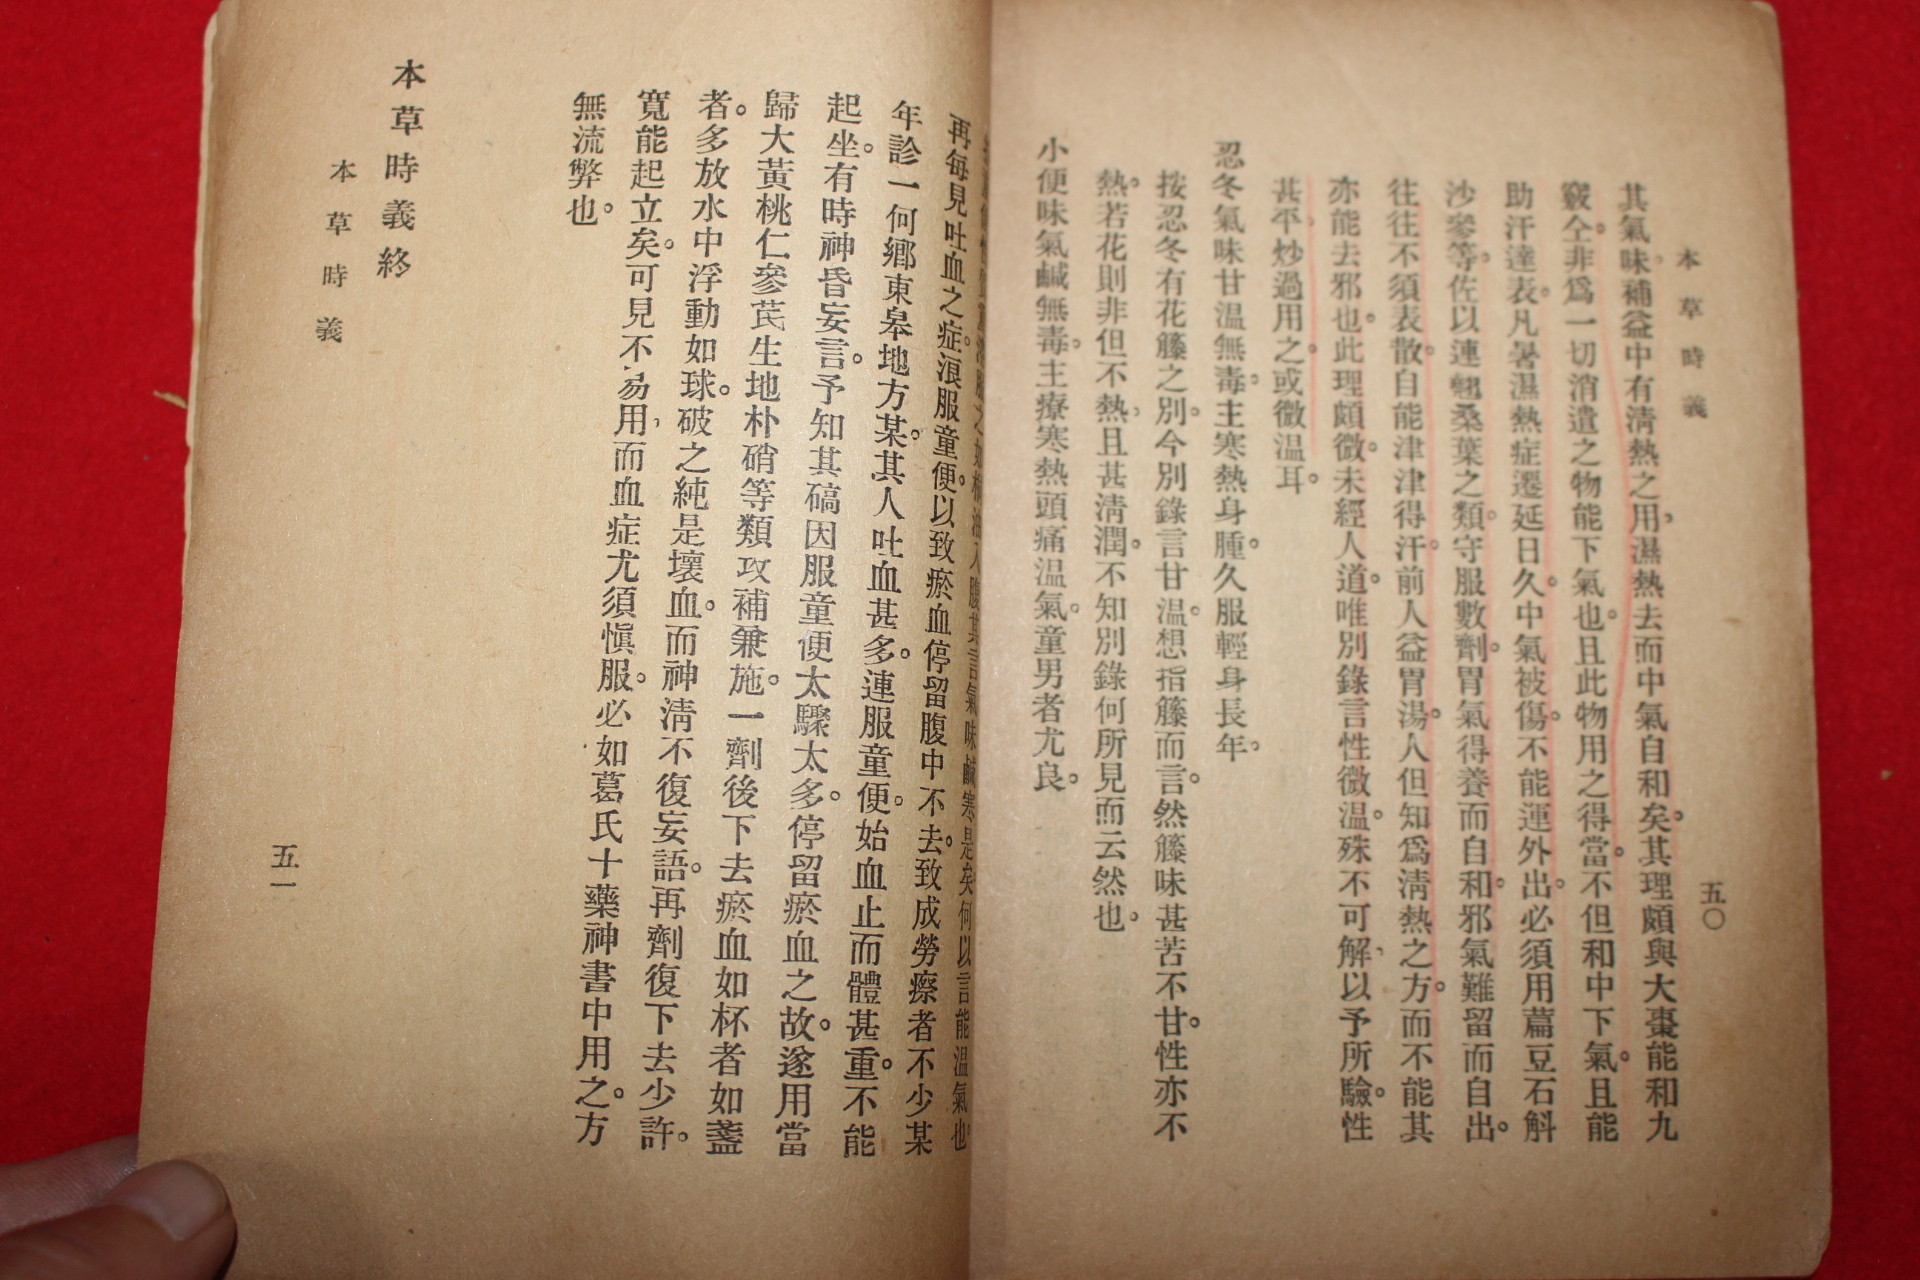 本草時義
五〇
其氣味補益中有淸熱之用濕熱去而中氣自和矣其理頗與大棗能和九
竅仝非爲一切消遣之物能下氣也且此物用之得當不但和中下氣且能
助汗達表凡暑濕熱症遷延日久中氣被傷不能運外出必須用萹豆石斛
沙參等佐以連翹桑葉之類守服數劑胃氣得養而自和邪氣難留而自出
往往不須表散自能津津得汗前人益胃湯人但知爲淸熱之方而不能其
亦能去邪也此理頗微未經人道唯別錄言性微温殊不可解以予所驗性
甚平炒過用之或微温耳
忍冬氣味甘温無毒主寒熱身腫久服輕身長年
按忍冬有花籐之別今別錄言甘温想指籐而言然籐味甚苦不甘性亦不
熱若花則非但不熱且甚淸潤不知別錄何所見而云然也
小便味氣鹹無毒主療寒熱頭痛温氣童男者尤良
服之如桐油入腹其言氣味鹹寒是矣何以言能温氣也
再每見吐血之症浪服童便以致瘀血停留腹中不去致成勞瘵者不少某
年診一何鄕東皋地方某其人吐血甚多連服童便始血止而體甚重不能
起坐有時神昏妄言予知其碻因服童便太驟太多停留瘀血之故遂用當
歸大黃桃仁參芪生地朴硝等類攻補兼施一劑後下去瘀血如杯者如盞
者多放水中浮動如球破之純是壞血而神淸不復妄語再劑復下去少許
寬能起立矣可見不易用而血症尤須愼服必如葛氏十藥神書中用之方
無流弊也
本草時義終
本草時義
五一